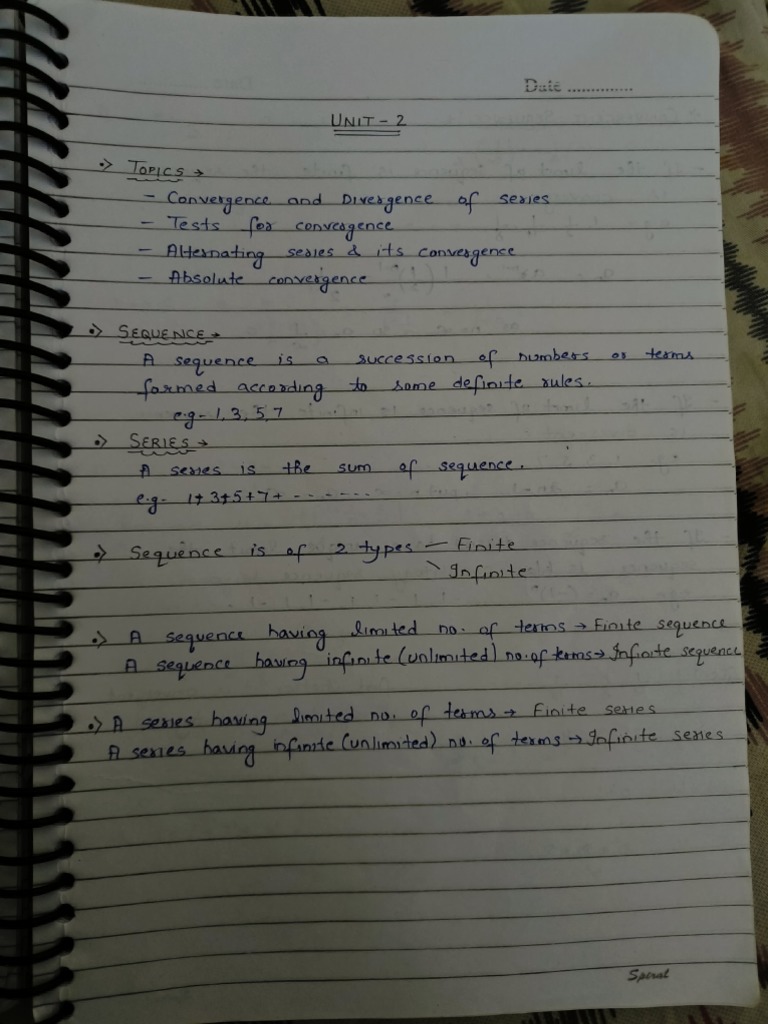 Date ..............
UNIT - 2
•> TOPICS →
- Convergence and Divergence of series
- Tests for convergence
- Alternating series & its convergence
- Absolute convergence
•> SEQUENCE →
A sequence is a succession of numbers or terms
formed according to some definite rules.
e.g- 1, 3, 5, 7
•> SERIES →
A series is the sum of sequence.
e.g- 1+3+5+7+ - - - - - - -
•> Sequence is of 2 types - Finite
\ Infinite
•> A sequence having limited no. of terms → Finite sequence
A sequence having infinite (unlimited) no. of terms → Infinite sequence
•> A series having limited no. of terms → Finite series
A series having infinite (unlimited) no. of terms → Infinite series
Speral